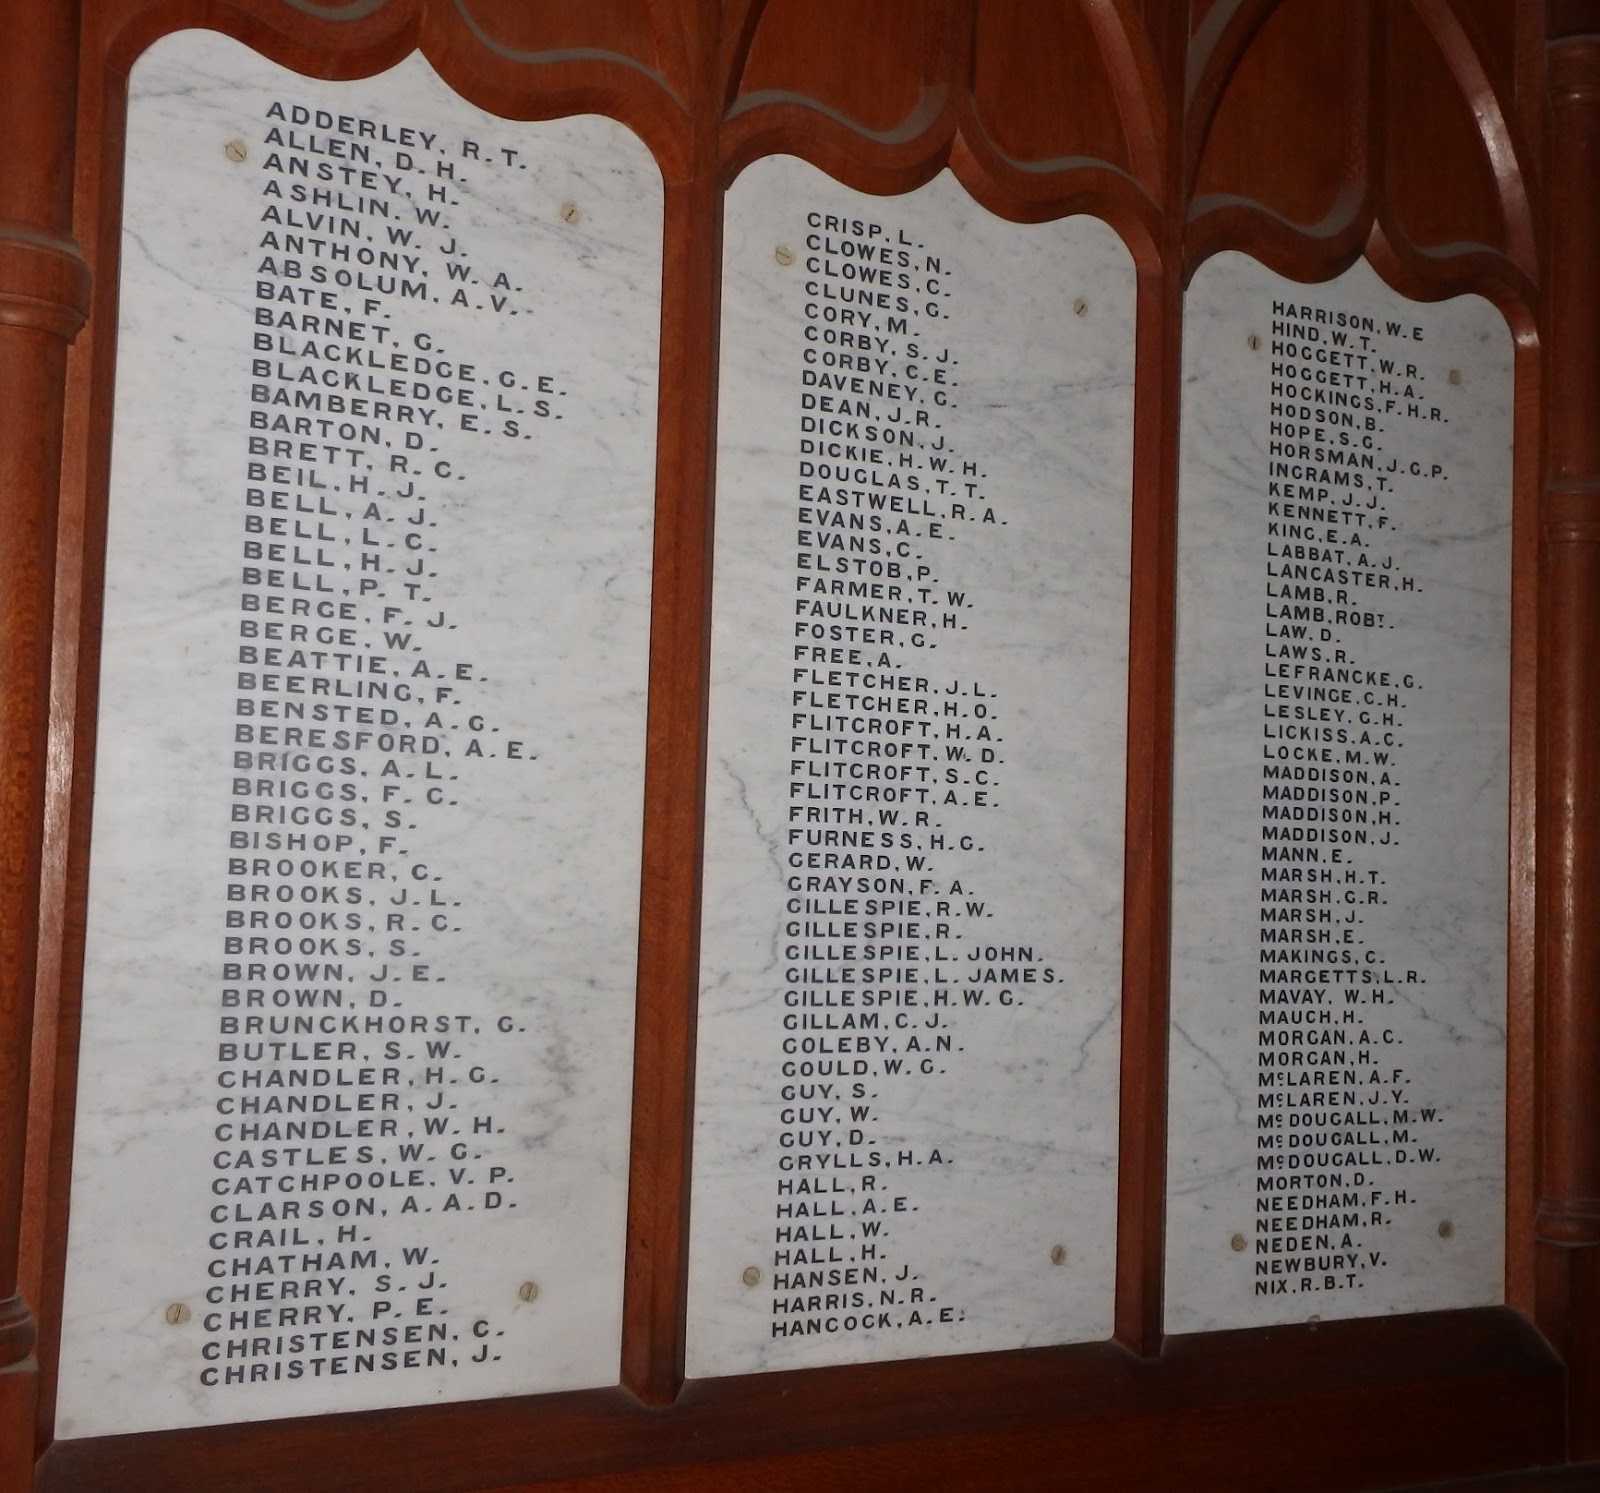 ADDERLEY, R. T.
ALLEN, D. H.
ANSTEY, H.
ASHLIN. W.
ALVIN, W. J.
ANTHONY, W. A.
ABSOLUM, A. V.
BATE, F.
BARNET, G.
BLACKLEDGE, G. E.
BLACKLEDGE, L. S.
BAMBERRY, E. S.
BARTON, D.
BRETT, R. C.
BEIL, H. J.
BELL, A. J.
BELL, L. C.
BELL, H. J.
BELL, P. T.
BERGE, F. J.
BERGE, W.
BEATTIE, A. E.
BEERLING, F.
BENSTED, A. G.
BERESFORD, A. E.
BRIGGS, A. L.
BRIGGS, F. C.
BRIGGS, S.
BISHOP, F.
BROOKER, C.
BROOKS, J. L.
BROOKS, R. C.
BROOKS, S.
BROWN, J. E.
BROWN, D.
BRUNCKHORST, G.
BUTLER, S. W.
CHANDLER, H. G.
CHANDLER, J.
CHANDLER, W. H.
CASTLES, W. G.
CATCHPOOLE, V. P.
CLARSON, A. A. D.
CRAIL, H.
CHATHAM, W.
CHERRY, S. J.
CHERRY, P. E.
CHRISTENSEN, C.
CHRISTENSEN, J.
CRISP, L.
CLOWES, N.
CLOWES, C.
CLUNES, G.
CORY, M.
CORBY, S. J.
CORBY, C. E.
DAVENEY, G.
DEAN, J. R.
DICKSON, J.
DICKIE, H. W. H.
DOUGLAS, T. T.
EASTWELL, R. A.
EVANS, A. E.
EVANS, C.
ELSTOB, P.
FARMER, T. W.
FAULKNER, H.
FOSTER, G.
FREE, A.
FLETCHER, J. L.
FLETCHER, H. O.
FLITCROFT, H. A.
FLITCROFT, W. D.
FLITCROFT, S. C.
FLITCROFT, A. E.
FRITH, W. R.
FURNESS, H. G.
GERARD, W.
GRAYSON, F. A.
GILLESPIE, R. W.
GILLESPIE, R.
GILLESPIE, L. JOHN.
GILLESPIE, L. JAMES.
GILLESPIE, H. W. G.
GILLAM, C. J.
GOLEBY, A. N.
GOULD, W. G.
GUY, S.
GUY, W.
GUY, D.
GRYLLS, H. A.
HALL, R.
HALL, A. E.
HALL, W.
HALL, H.
HANSEN, J.
HARRIS, N. R.
HANCOCK, A. E.
HARRISON, W. E
HIND, W. T.
HOGGETT, W. R.
HOGGETT, H. A.
HOCKINGS, F. H. R.
HODSON, B.
HOPE, S. G.
HORSMAN, J. G. P.
INGRAMS, T.
KEMP, J. J.
KENNETT, F.
KING, E. A.
LABBAT, A. J.
LANCASTER, H.
LAMB, R.
LAMB, ROBT.
LAW, D.
LAWS, R.
LEFRANCKE, G.
LEVINGE, C. H.
LESLEY, G. H.
LICKISS, A. C.
LOCKE, M. W.
MADDISON, A.
MADDISON, P.
MADDISON, H.
MADDISON, J.
MANN, E.
MARSH, H. T.
MARSH, G. R.
MARSH, J.
MARSH, E.
MAKINGS, C.
MARGETTS, L. R.
MAVAY, W. H.
MAUCH, H.
MORGAN, A. C.
MORGAN, H.
McLAREN, A. F.
McLAREN, J. Y.
McDOUGALL, M. W.
McDOUGALL, M.
McDOUGALL, D. W.
MORTON, D.
NEEDHAM, F. H.
NEEDHAM, R.
NEDEN, A.
NEWBURY, V.
NIX, R. B. T.